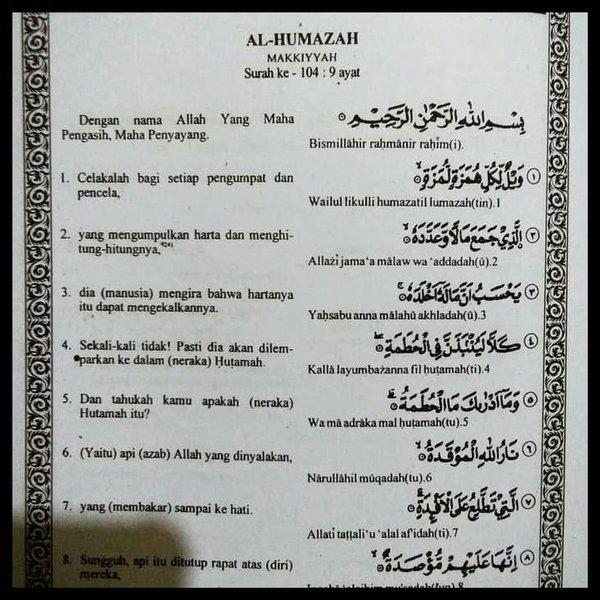 AL-HUMAZAH
MAKKIYYAH
Surah ke - 104 : 9 ayat
Dengan nama Allah Yang Maha
Pengasih, Maha Penyayang.
بِسْمِ اللّٰهِ الرَّحْمٰنِ الرَّحِيْمِ
Bismillāhir raḥmānir raḥīm(i).
1. Celakalah bagi setiap pengumpat dan
pencela,
وَيْلٌ لِّكُلِّ هُمَزَةٍ لُّمَزَةٍۙ ١
Wailul likulli humazatil lumazah(tin).1
2. yang mengumpulkan harta dan menghi-
tung-hitungnya,⁹²⁴⁾
الَّذِيْ جَمَعَ مَالًا وَّعَدَّدَهٗۙ ٢
Allażī jama‘a mālaw wa ‘addadah(ū).2
3. dia (manusia) mengira bahwa hartanya
itu dapat mengekalkannya.
يَحْسَبُ اَنَّ مَالَهٗٓ اَخْلَدَهٗۚ ٣
Yaḥsabu anna mālahū akhladah(ū).3
4. Sekali-kali tidak! Pasti dia akan dilem-
parkan ke dalam (neraka) Ḥuṭamah.
كَلَّا لَيُنْۢبَذَنَّ فِى الْحُطَمَةِۖ ٤
Kallā layumbażanna fil ḥuṭamah(ti).4
5. Dan tahukah kamu apakah (neraka)
Hutamah itu?
وَمَآ اَدْرٰىكَ مَا الْحُطَمَةُۗ ٥
Wa mā adrāka mal ḥuṭamah(tu).5
6. (Yaitu) api (azab) Allah yang dinyalakan,
نَارُ اللّٰهِ الْمُوْقَدَةُۙ ٦
Nārullāhil mūqadah(tu).6
7. yang (membakar) sampai ke hati.
الَّتِيْ تَطَّلِعُ عَلَى الْاَفْـِٕدَةِۗ ٧
Allatī taṭṭali‘u ‘alal af'idah(ti).7
8. Sungguh, api itu ditutup rapat atas (diri)
mereka,
اِنَّهَا عَلَيْهِمْ مُّؤْصَدَةٌۙ ٨